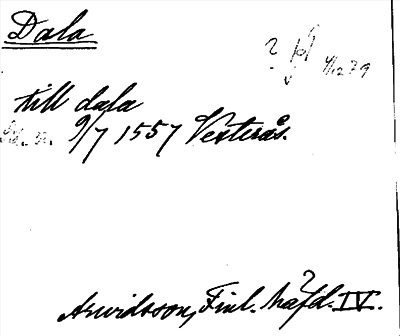 Dala
?
till dala
9/7 1557 Vesterås.
Arwidsson, Finl. häfd. IV.